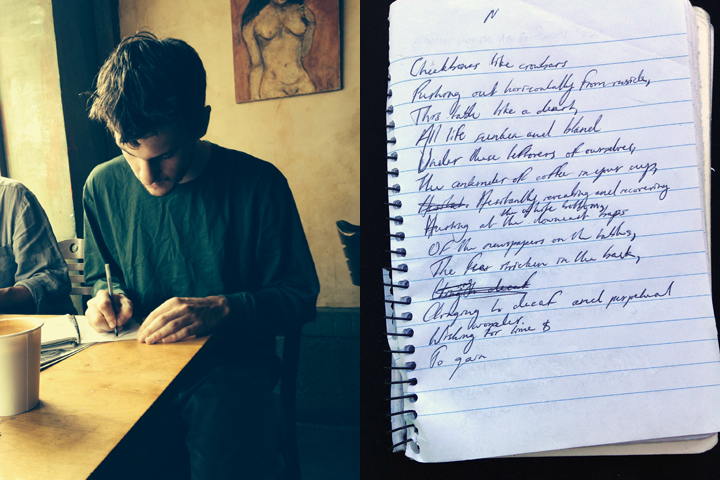 N
Cheekbones like crowbars
Pushing out horizontally from inside,
This table like a desk,
All life sunken and bland
Under these leftovers of ourselves,
The of coffee in your cup,
Hesitantly, revealing and recovering
the white bottom,
Hinting at the downcast
Of the newspapers on the tables,
The fear stricken in the back,
Clinging to decaf and perpetual
wonder.
Wishing for time &
To gain